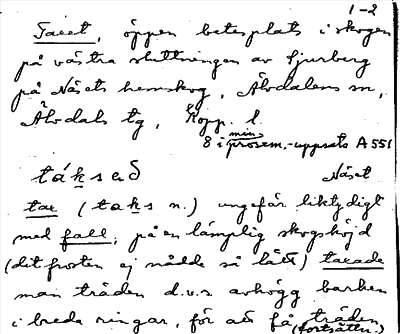 1-2
Taxet, öppen betesplats i skogen
på västra sluttningen av Ljurberg
på Näsets hemskog, Älvdalens sn,
Älvdals tg, Kopp. l.
8 i min prosem.-uppsats A 551
táksað Näset
tax (taks n.) ungefär liktydigt
med fall; på en lämplig skogshöjd
(dit frosten ej nådde så lätt) taxade
man träden d.v.s avhögg barken
i breda ringar, för att få träden
(fortsätter.)